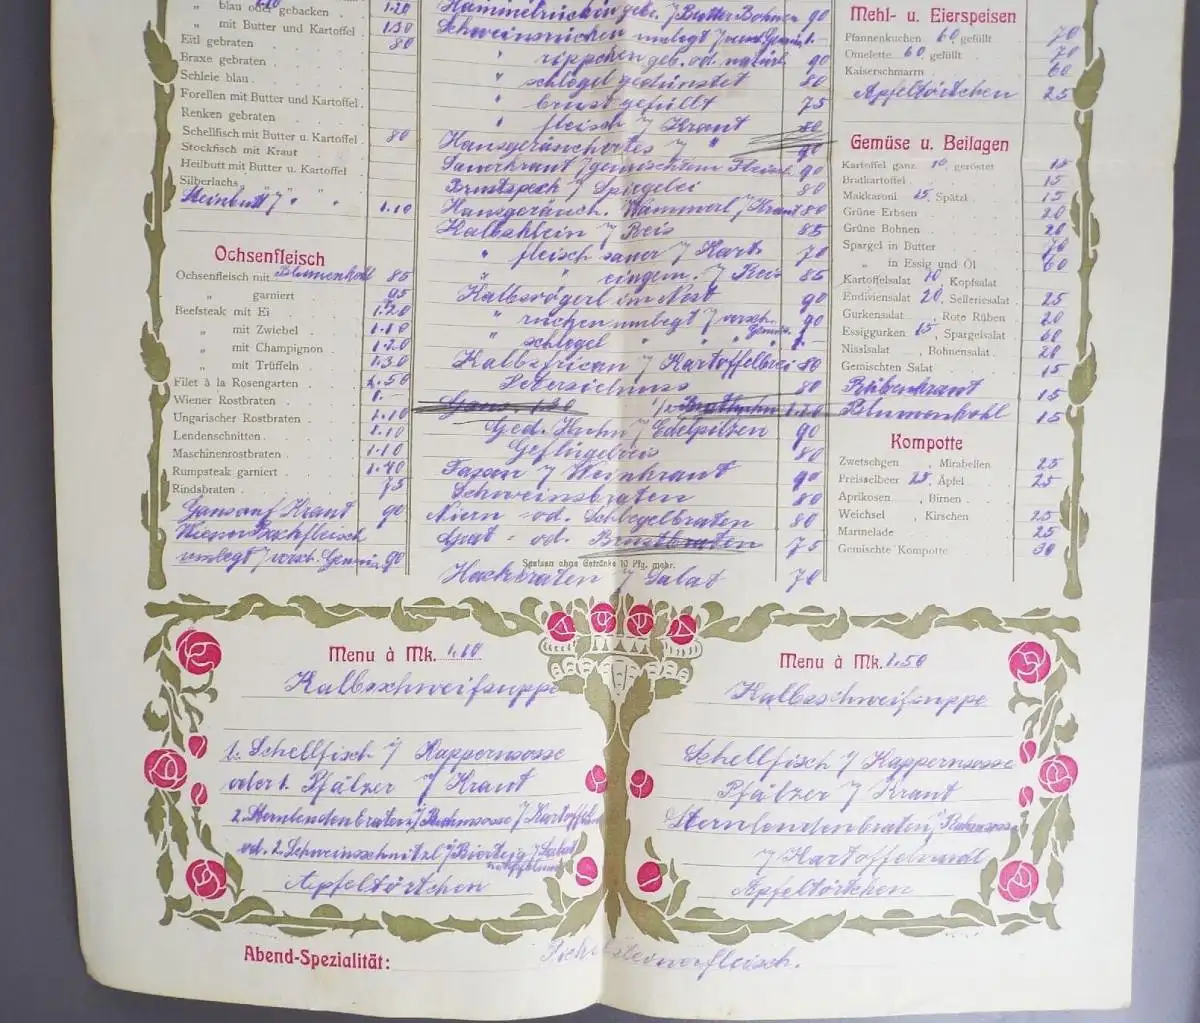 blau oder gebacken 1.20
" mit Butter und Kartoffel 1.30
Eitl gebraten 80
Braxe gebraten
Schleie blau
Forellen mit Butter und Kartoffel
Renken gebraten
Schellfisch mit Butter u. Kartoffel 80
Stockfisch mit Kraut
Heilbutt mit Butter u. Kartoffel
Silberlachs " " "
Steinbutt 7 " " 1.10
Ochsenfleisch
Ochsenfleisch mit Blumenkohl 85
" garniert 95
Beefsteak mit Ei 1.20
" mit Zwiebel 1.10
" mit Champignon 1.20
" mit Trüffeln 1.30
Filet à la Rosengarten 2.50
Wiener Rostbraten 1.–
Ungarischer Rostbraten 1.10
Lendenschnitten 1.10
Maschinenrostbraten 1.10
Rumpsteak garniert 1.40
Rindsbraten 75
Gansauf Kraut 90
Wiener Backfleisch
umlegt 7 versch. Gemüs 90
Hammelrücken gebr. 7 Butter Bohnen 90
Schweinsrücken umlegt 7 versch. Gemüs 1.–
" rippchen geb. od. natürl. 90
" schlegel gedünstet 80
" brust gefüllt 75
" fleisch 7 Kraut 80
Hausgeräuchertes 7 " 90
Sauerkraut 7 gemischtem Fleisch 90
Brustspech 7 Spiegelei 80
Hausgeräuch. Wammerl 7 Kraut 80
Kalbshlein 7 Reis 85
" fleisch sauer 7 Kart. 70
" " eingem. 7 Reis 85
Kalbsvögerl im Nest 90
" rücken umlegt 7 versch. Gemüs. 90
" schlegel " " " " 1.–
Kalbsfrican 7 Kartoffelbrei 80
80
Gans 1.20 1/2 Brathuhn 1.20
Ged. Huhn 7 Edelpilzen 90
Geflügelreis 80
Fasan 7 Weinkraut 90
Schweinsbraten 80
Niern- od. Schlegelbraten 80
Grat- od. Brustbraten 75
Speisen ohne Getränke 10 Pfg. mehr.
Hackbraten 7 Salat 70
Mehl- u. Eierspeisen
Pfannenkuchen 60, gefüllt 70
Omelette 60, gefüllt 70
Kaiserschmarrn 60
Apfeltörtchen 25
Gemüse u. Beilagen
Kartoffel ganz 10, geröstet 15
Bratkartoffel 15
Makkaroni 15, Spätzl 15
Grüne Erbsen 20
Grüne Bohnen 20
Spargel in Butter 70
" in Essig und Öl 60
Kartoffelsalat 10, Kopfsalat
Endiviensalat 20, Selleriesalat 25
Gurkensalat , Rote Rüben 20
Essiggurken 15, Spargelsalat 60
Nisslsalat , Bohnensalat 20
Gemischten Salat 15
Rübenkraut 15
Blumenkohl 15
Kompotte
Zwetschgen , Mirabellen 25
Preisselbeer 25, Äpfel 25
Aprikosen , Birnen
Weichsel , Kirschen 25
Marmelade 25
Gemischte Kompotte 30
Menu à Mk. 1.10
Kalbsschweifsuppe
1. Schellfisch 7 Kappernsosse
oder 1. Pfälzer 7 Kraut
2. Sternlendenbraten 7 Rahmsosse 7 Kartoffelnudl
od. 2. Schweinsschnitzl 7 Bierteig 7 Salat
Apfeltörtchen
Menu à Mk. 1.50
Kalbsschweifsuppe
Schellfisch 7 Kappernsosse
Pfälzer 7 Kraut
Sternlendenbraten 7 Rahmsosse
7 Kartoffelnudl
Apfeltörtchen
Abend-Spezialität: Pichelsteinerfleisch.